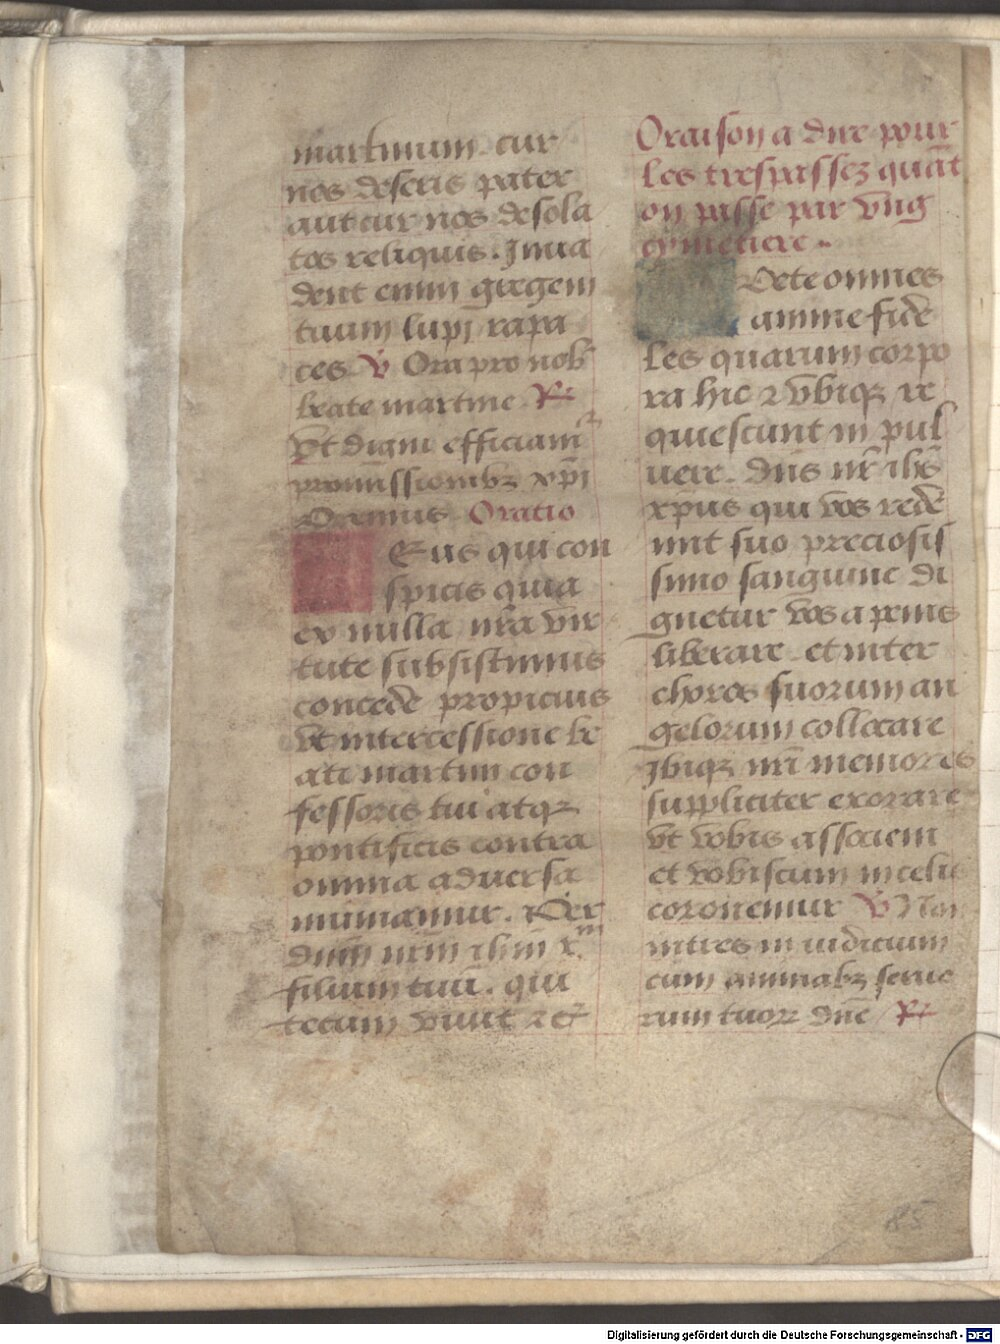 martinum cur
nos deseris pater
aut cur nos desola
tos reliquis. Inua
dent enim gregem
tuum lupi rapa
ces v̄ Ora pro nob̄
beate martine R̄
vt digni efficiam²
promissionibꝫ xp̄i
Oremus Oratio
Eus qui con
spicis quia
ex nulla nr̄a vir
tute subsistimus
concede propicius
vt intercessione be
ati martini con
fessoris tui atqꝫ
pontificis contra
omnia aduersa
muniamur. Per
dn̄m nrm̄ ihm̄ xᵐ
filium tuū. qui
tecum viuit ⁊ c̄
Oraison a dire pour
les trespassez quāt
on passe par vng
cymetiere.
Vete omnes
anime fide
les quarum corpo
ra hic ⁊ vbiqꝫ re
quiescunt in pul
uere. dn̄s nr̄ ihs̄
xp̄us qui vos rede
mit suo preciosis
simo sanguine di
gnetur vos a penis
liberare et inter
choros suorum an
gelorum collocare
Ibiqꝫ nr̄i memores
suppliciter exorare
vt vobis associem
et vobiscum in celis
coronemur v̄ Non
intres in iudicium
cum animabꝫ seruo
rum tuoꝝ dn̄e R̄
85
Digitalisierung gefördert durch die Deutsche Forschungsgemeinschaft - DFG